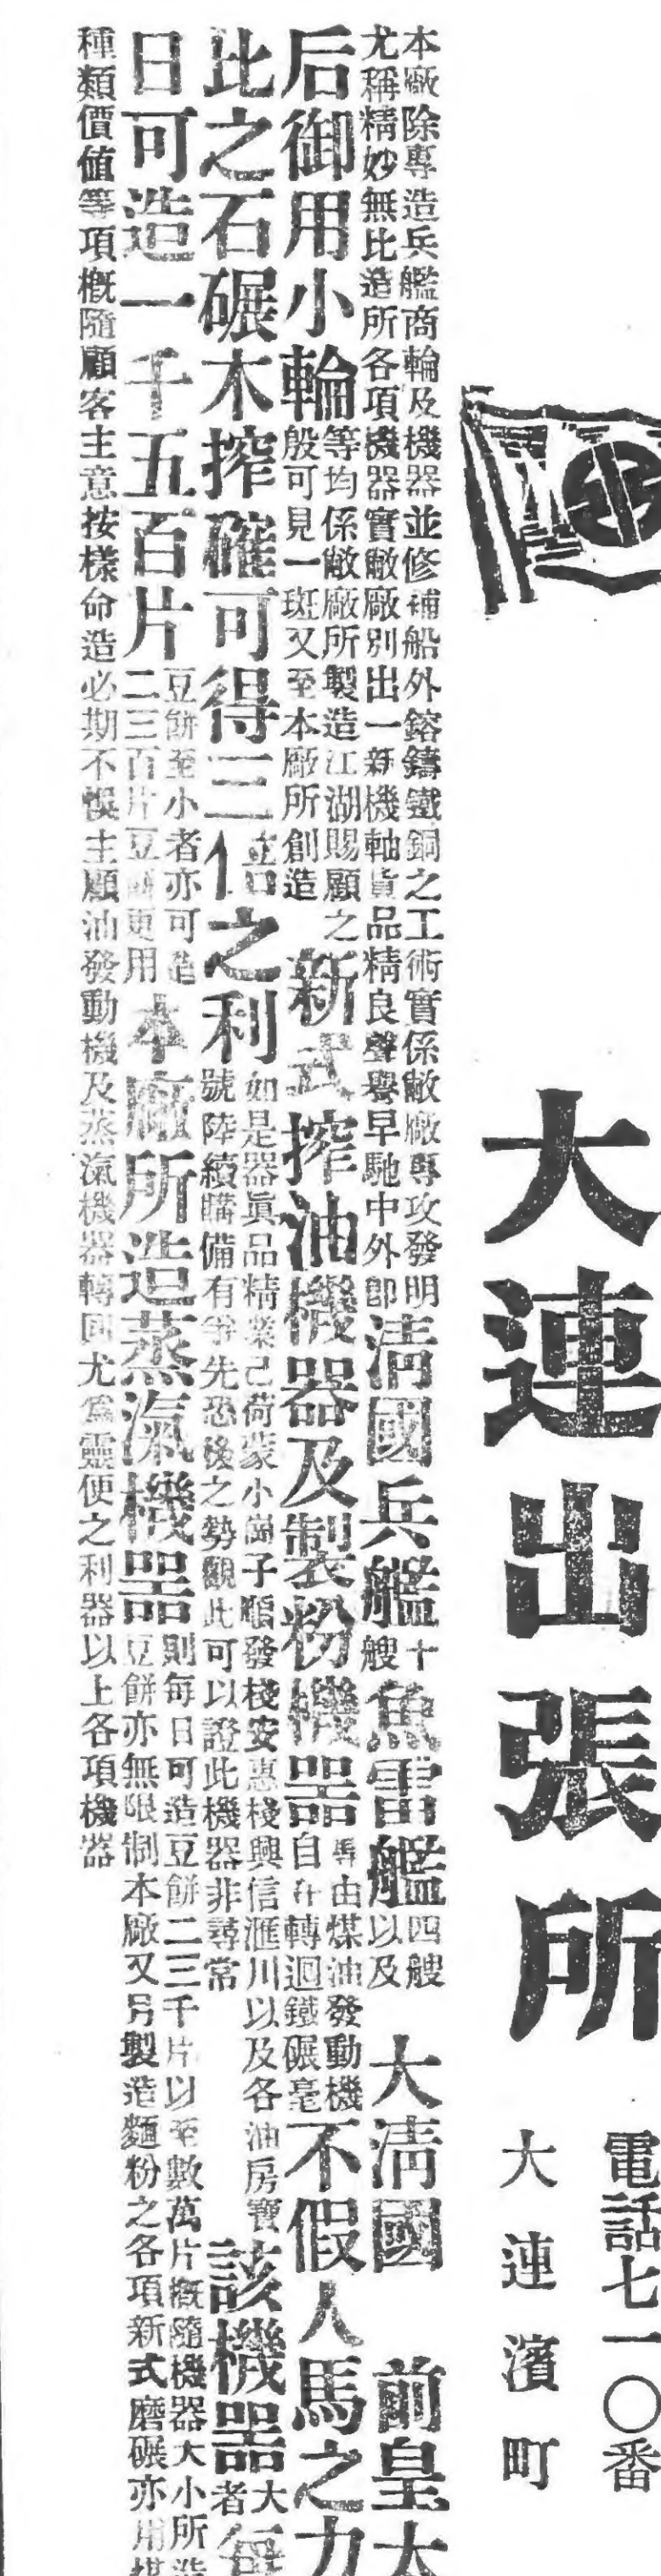 大連出張所
電話七一〇番
大連濱町
本廠除專造兵艦商輪及機器並修補船外鎔鑄鐵銅之工術實係敝廠專攻發明
尤稱精妙無比造所各項機器實敝廠別出一新機軸貨品精良聲譽早馳中外卽
清國兵艦十艘魚雷艦四艘以及大清國 前皇太
后御用小輪
等均係敝廠所製造江湖賜顧之
殷可見一斑又至本廠所創造
新式搾油機器及製粉機器
專由煤油發動機
自在轉迴鐵碾毫
不假人馬之力
此之石碾木搾確可得三倍之利
如是器眞品精業已荷蒙小崗子順發棧安惠棧興信滙川以及各油房寶
號陸續購備有爭先恐後之勢觀此可以證此機器非尋常
該機器大者每
日可造一千五百片
豆餅至小者亦可造
二三百片豆餅更用
本廠所造蒸汽機器
則每日可造豆餅二三千片以至數萬片概隨機器大小所
豆餅亦無限制本廠又另製造麵粉之各項新式磨碾亦用
種類價値等項概隨顧客主意按樣命造必期不悞主顧油發動機及蒸汽機器轉回尤爲靈便之利器以上各項機器